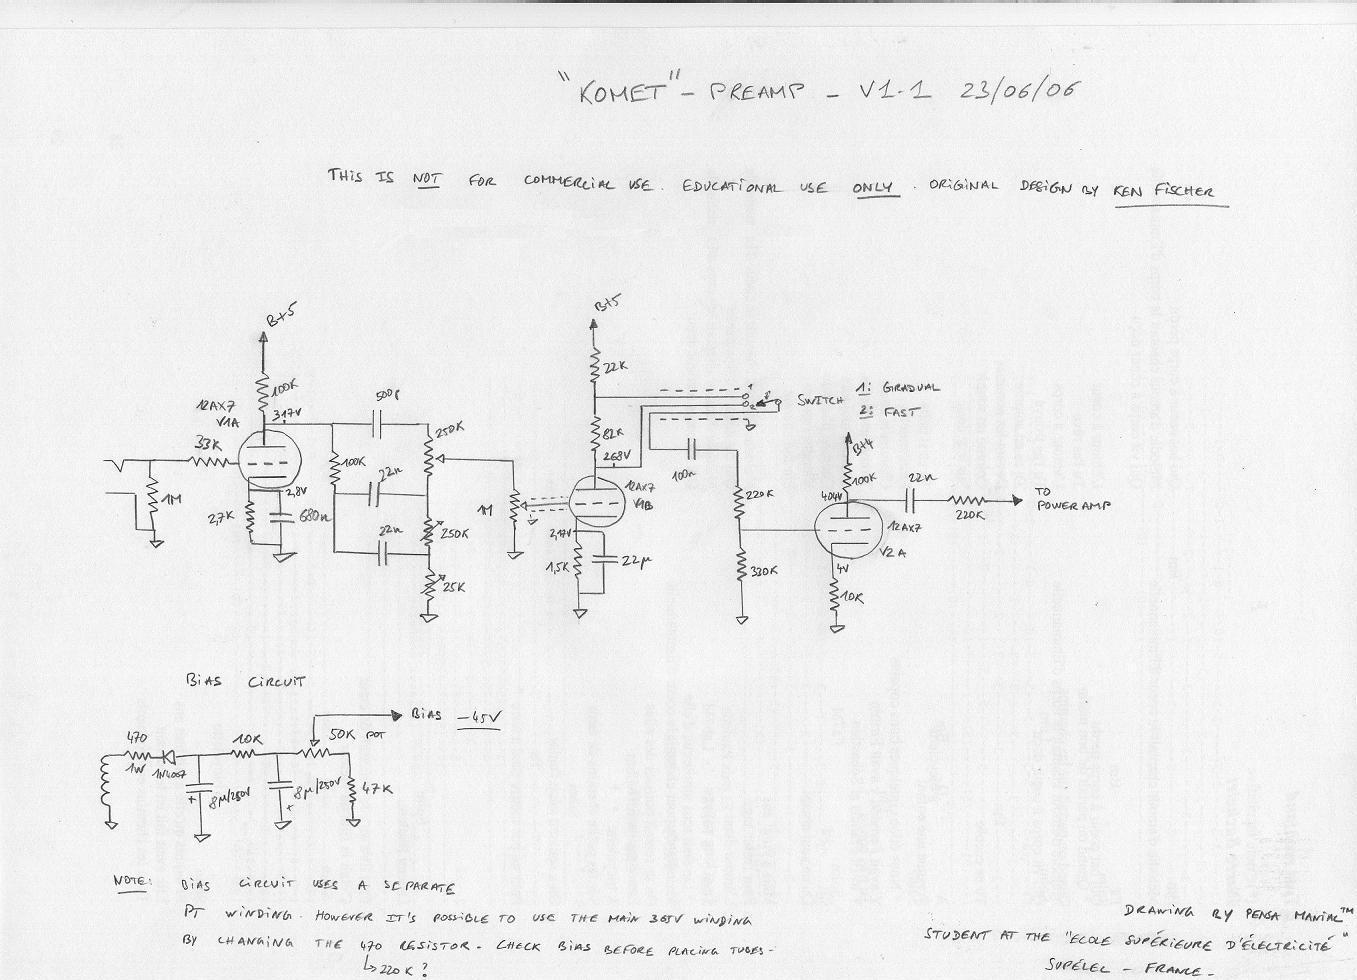 "KOMET" - PREAMP - V1.1 23/06/06
THIS IS NOT FOR COMMERCIAL USE. EDUCATIONAL USE ONLY. ORIGINAL DESIGN BY KEN FISCHER
B+5
100K
12AX7
V1A
317V
33K
1M
2,8V
2,7K
680n
500p
100K
250K
22n
22n
250K
25K
1M
B+5
22K
82K
268V
12AX7
V1B
2,17V
1,5K
22µ
1
2
SWITCH
1: GRADUAL
2: FAST
100n
220K
330K
B+4
100K
404V
12AX7
V2A
4V
10K
22n
220K
TO
POWER AMP
BIAS CIRCUIT
BIAS -45V
470
1W
1N4007
10K
50K POT
+
8µ/250V
8µ/250V
+
47K
NOTE: BIAS CIRCUIT USES A SEPARATE
PT WINDING. HOWEVER IT'S POSSIBLE TO USE THE MAIN 365V WINDING
BY CHANGING THE 470 RESISTOR - CHECK BIAS BEFORE PLACING TUBES -
220K ?
DRAWING BY PENSA MANIAC™
STUDENT AT THE "ECOLE SUPÉRIEURE D'ÉLECTRICITÉ"
SUPÉLEC - FRANCE -